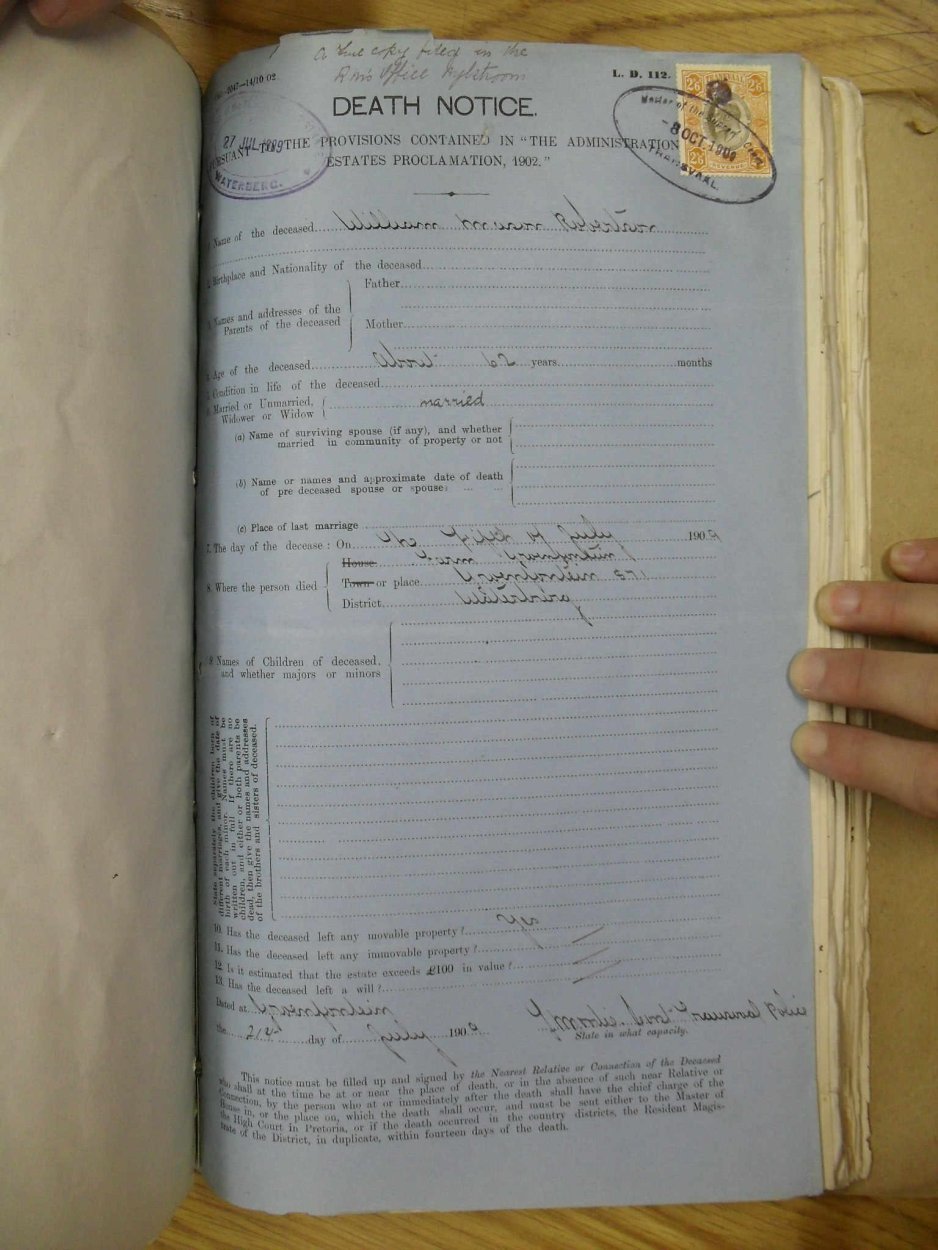 a true copy filed in the
RM's Office Nylstroom
L. D. 112.
DEATH NOTICE.
27 JUL 1909
WATERBERG.
TRANSVAAL
2/6 2/6
2/6 2/6
REVENUE
Master of the Supreme Court
-8 OCT 1909
TRANSVAAL.
PURSUANT TO THE PROVISIONS CONTAINED IN "THE ADMINISTRATION
ESTATES PROCLAMATION, 1902."
Name of the deceased William Robertson
Birthplace and Nationality of the deceased
Names and addresses of the Parents of the deceased
Father
Mother
Age of the deceased About 62 years months
Condition in life of the deceased
Married or Unmarried,
Widower or Widow married
(a) Name of surviving spouse (if any), and whether
married in community of property or not
(b) Name or names and approximate date of death
of pre deceased spouse or spouses
(c) Place of last marriage
7. The day of the decease: On The Fifth of July 1909
8. Where the person died
House Farm
Town or place 571
District Waterberg
9. Names of Children of deceased,
and whether majors or minors
State separately the children born of
different marriages, and give the date of
birth of each minor. Names must be
written out in full. If there are no
children, and either or both parents be
dead, then give the names and addresses
of the brothers and sisters of deceased.
10. Has the deceased left any movable property? Yes
11. Has the deceased left any immovable property?
12. Is it estimated that the estate exceeds £100 in value?
13. Has the deceased left a will?
Dated at
the 21st day of July 1909
Transvaal Police
State in what capacity.
This notice must be filled up and signed by the Nearest Relative or Connection of the Deceased
who shall at the time be at or near the place of death, or in the absence of such near Relative or
Connection, by the person who at or immediately after the death shall have the chief charge of the
House in, or the place on, which the death shall occur, and must be sent either to the Master of
the High Court in Pretoria, or if the death occurred in the country districts, the Resident Magis-
trate of the District, in duplicate, within fourteen days of the death.